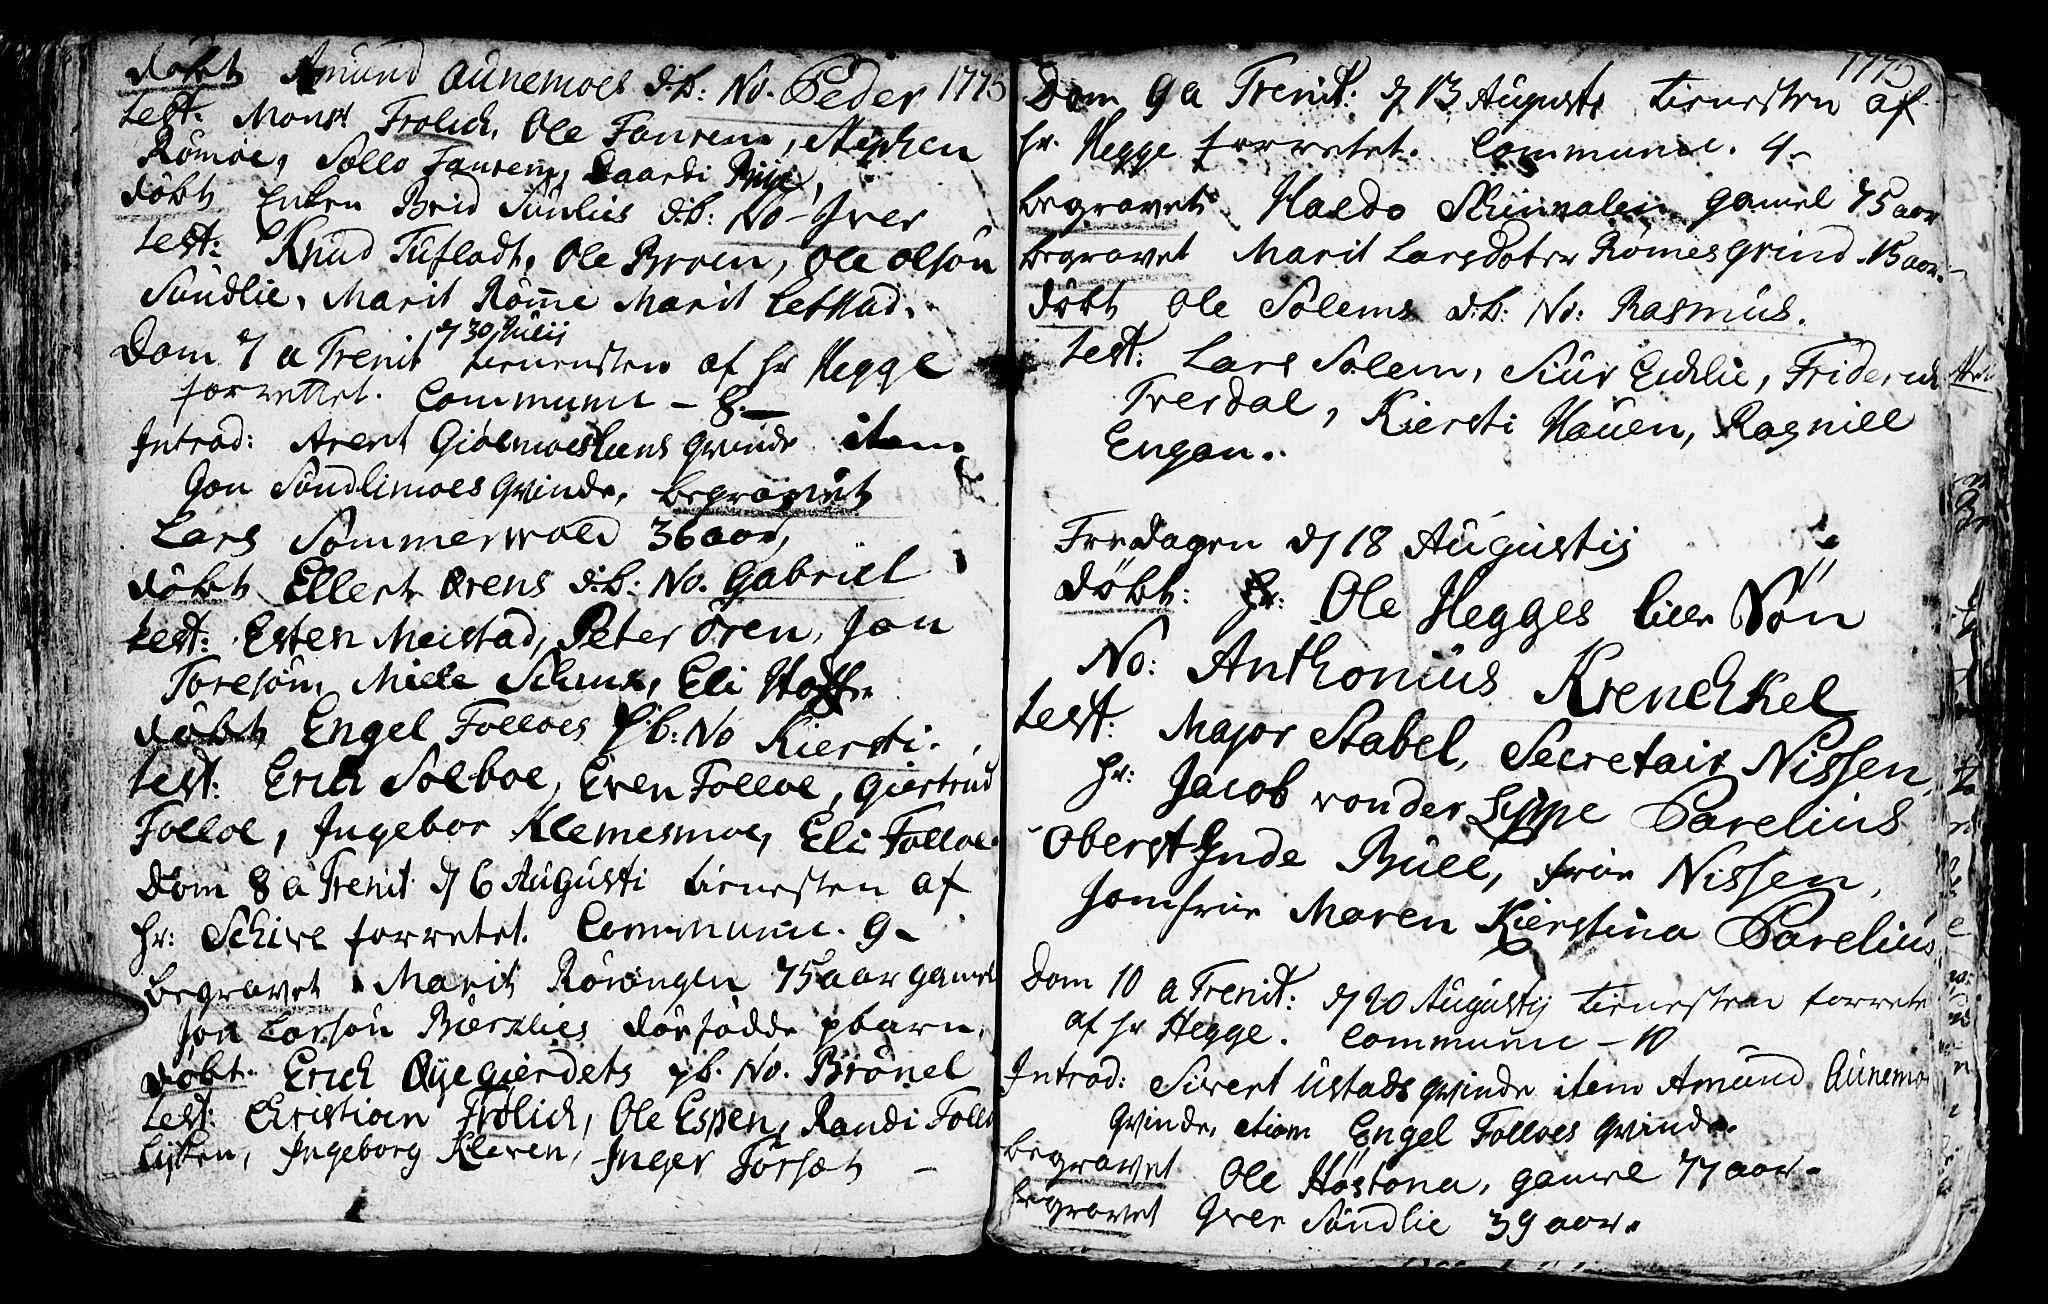 1775
döbt Amund Aunemoes d:b: No. Peder
test. Monsr Frolich, Ole Fanrem, Stephen
Römoe, Sollo Fanrem, Baardi Rije,
döbt Enken Brid Sundlies d:b: No - Iver
test: Knud Tufladt, Ole Breen, Ole Olsön
Sundlie, Marit Röme Marit Lefstad.
Dom 7 a Trenit d 30 Julij tienesten af hr Hegge
forrettet. Commune - 8. -
Introd: Arent Giölmoesliens qvinde item
Jon Sundlimoes Qvinde, begravet
Lars Sommerwold 36 aar,
döbt Ellert Ørens d:b: No. Gabriel
test: Esten Meistad, Peter Ören, Jon
Toresön, Eli Hoff.
döbt Engel Folloes p:b: No Kiersti.
test: Erich Solboe, Even Folloe, Giertrud
Folloe, Ingebor Klemesmoe, Eli Folloe.
Dom 8 a Trenit d 6 Augusti tienesten af
hr: Schive forretet. Commune. 9 -
begravet Marit Röningen 75 aar gamel
Jon Larsön Bierklies dödfödde pbarn.
döbt. Erich Ryegierdets pb. No. Brönel
test: Christian Frölich, Ole Espen, Randi Follo
Lyken, Ingeborg Kleven, Inger Forsæt -
1775
Dom 9 a Trenit: d 13 Augusti tienesten af
hr. Hegge forretet. Commune. 4 -
begravet Haldo gamel 75 aar
begravet Marit Larsdoter Römesgrind 15 aar. -
döbt Ole Solems d:b: No: Rasmus.
test: Lars Solem, Siur Echlie, Friderich
Trerdal, Kiersti Hauen, Ragnill
Engan.
Fredagen d 18 Augustij
döbt: hr: Ole Hegges liden Sön
No: Anthonius Krenchkel
test: Major Stabel, Secretair Nissen,
hr: Jacob von der Lippe Parelius
Oberst Inde Bull, frue Nissen,
Jomfrue Maren Kierstina Parelius.
Dom 10 a Trenit: d 20 Augustij tienesten forrete
af hr Hegge. Commune - 10
Introd: Sivert Ustads qvinde item Amund Aunemo
Qvinde, etiam Engel Folloes Qvinde.
begravet Ole Höstona, gamel 77 aar -
begravet Iver Sundlie 39 aar.